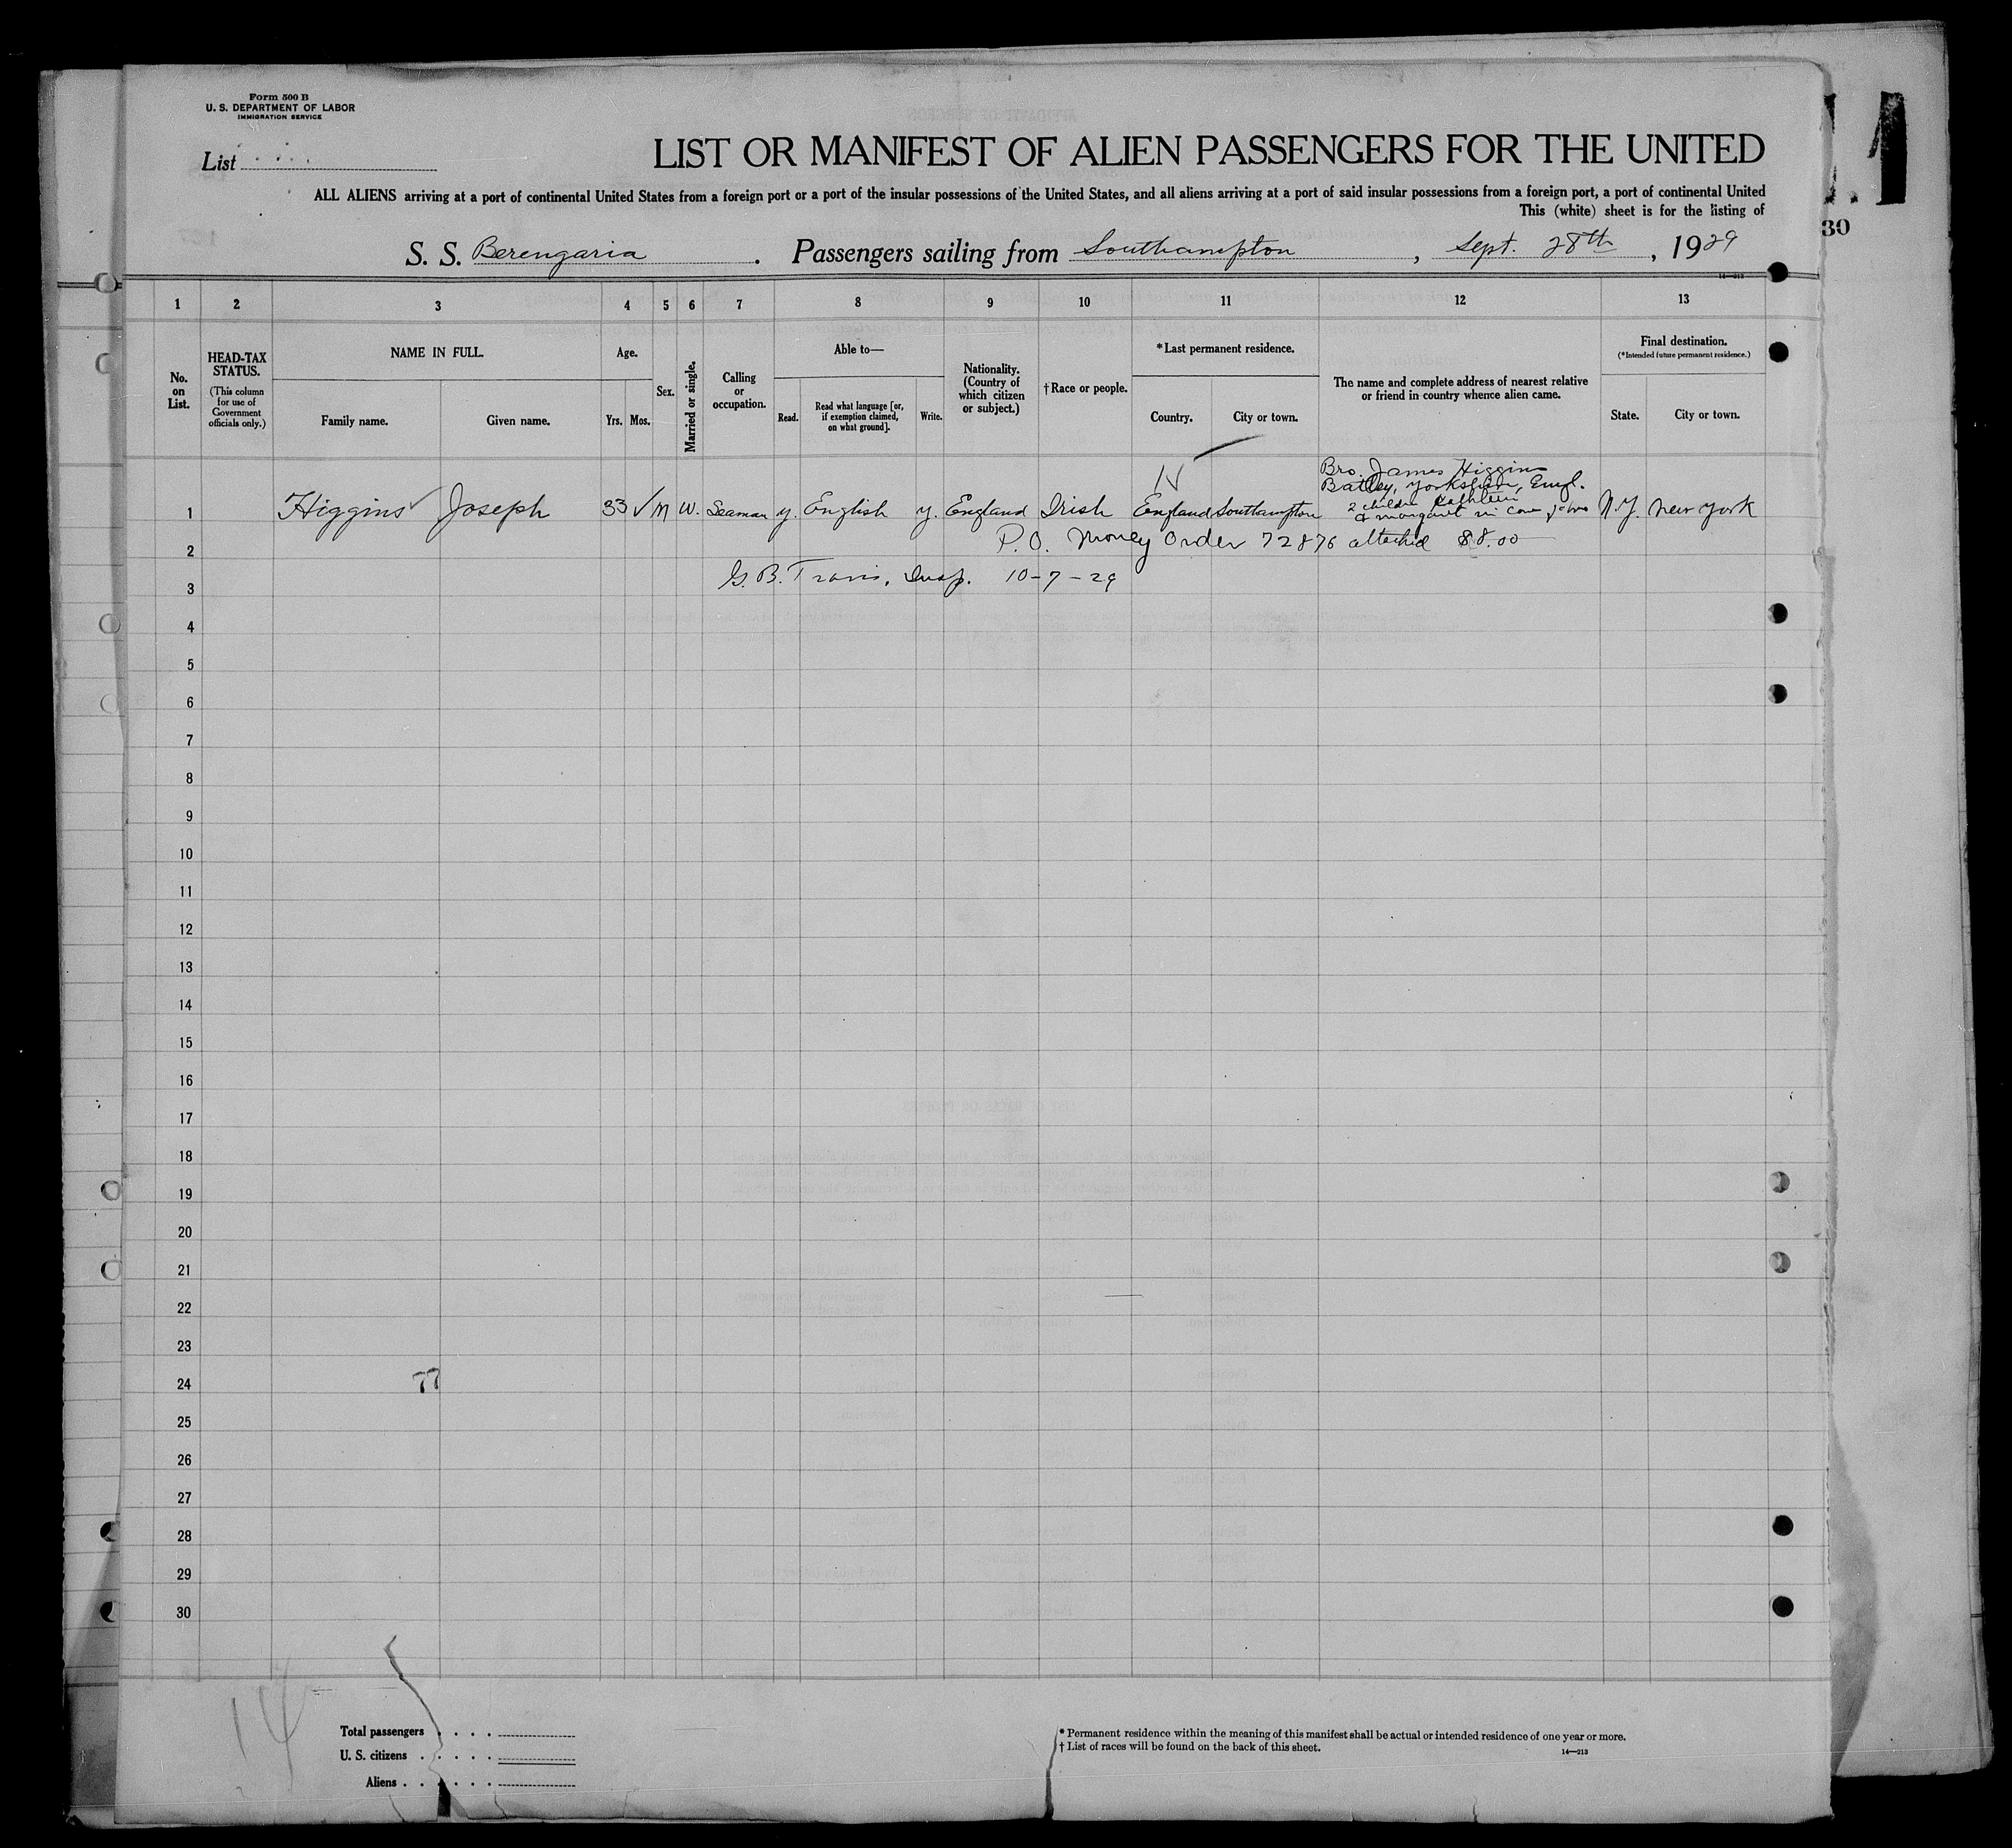 Form 500 B
U. S. DEPARTMENT OF LABOR
IMMIGRATION SERVICE
List
LIST OR MANIFEST OF ALIEN PASSENGERS FOR THE UNITED
ALL ALIENS arriving at a port of continental United States from a foreign port or a port of the insular possessions of the United States, and all aliens arriving at a port of said insular possessions from a foreign port, a port of continental United
This (white) sheet is for the listing of
30
S. S. Berengaria . Passengers sailing from Southampton , Sept. 28th , 1929
14—213
1 2 3 4 5 6 7 8 9 10 11 12 13
No. on List.
HEAD-TAX STATUS.
(This column for use of Government officials only.)
NAME IN FULL.
Family name. Given name.
Age.
Yrs. Mos.
Sex.
Married or single.
Calling or occupation.
Able to—
Read. Read what language [or, if exemption claimed, on what ground]. Write.
Nationality. (Country of which citizen or subject.)
†Race or people.
*Last permanent residence.
Country. City or town.
The name and complete address of nearest relative or friend in country whence alien came.
Final destination.
(*Intended future permanent residence.)
State. City or town.
Bro. James Higgins
Batley, Yorkshire, Engl.
1 Higgins Joseph 33 M W. Seaman y. English y. England Irish England Southampton N.Y. New York
2 Kathleen
& Margaret in
2 P.O. Money Order 72876 attached $8.00
3 G. B. Travis, Insp. 10-7-29
4
5
6
7
8
9
10
11
12
13
14
15
16
17
18
19
20
21
22
23
24 77
25
26
27
28
29
30
14
Total passengers
U. S. citizens
Aliens
* Permanent residence within the meaning of this manifest shall be actual or intended residence of one year or more.
† List of races will be found on the back of this sheet.
14—213